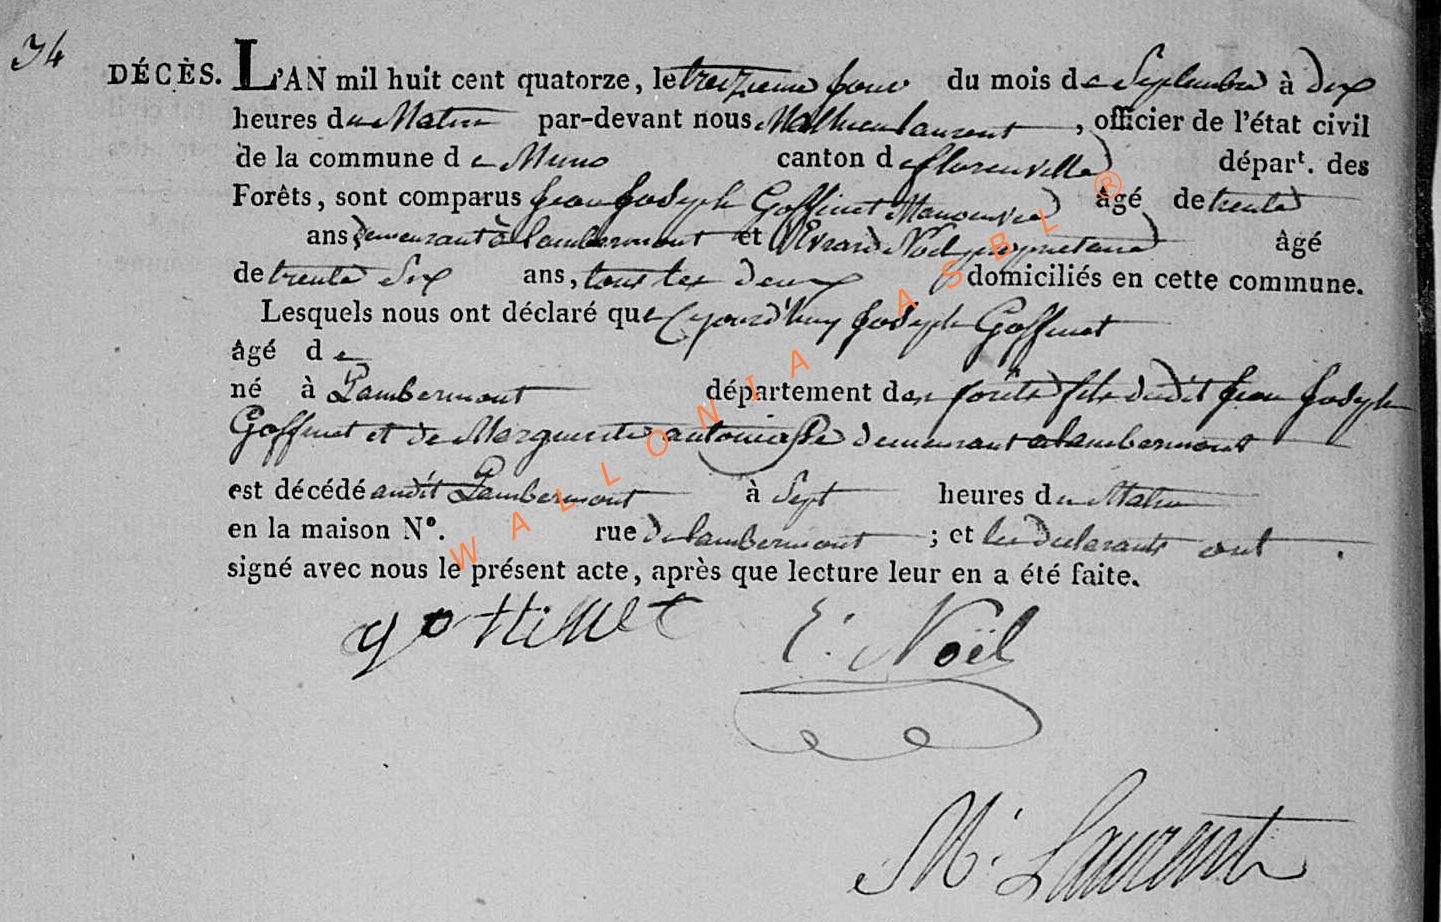 34
DÉCÈS. L'AN mil huit cent quatorze, le treizieme jour du mois de Septembre à dix
heures du Matin par-devant nous Mathieu laurent, officier de l'état civil
de la commune de Muno canton de florenville départ. des
Forêts, sont comparus jean joseph Goffinet Manouvrier âgé de trente
ans demeurant à lambermont et Evrard Noël proprietaire âgé
de trente Six ans, tous les deux domiciliés en cette commune.
Lesquels nous ont déclaré que Cejourd'huy joseph Goffinet
âgé de
né à Lambermont département des forêts fils dudit jean joseph
Goffinet et de Marguerite demeurant a lambermont
est décédé audit Lambermont à Sept heures du Matin
en la maison N°. rue de lambermont ; et les declarants ont
signé avec nous le présent acte, après que lecture leur en a été faite.
goffinet E. Noël
M. Laurent
WALLONIA ASBL ®